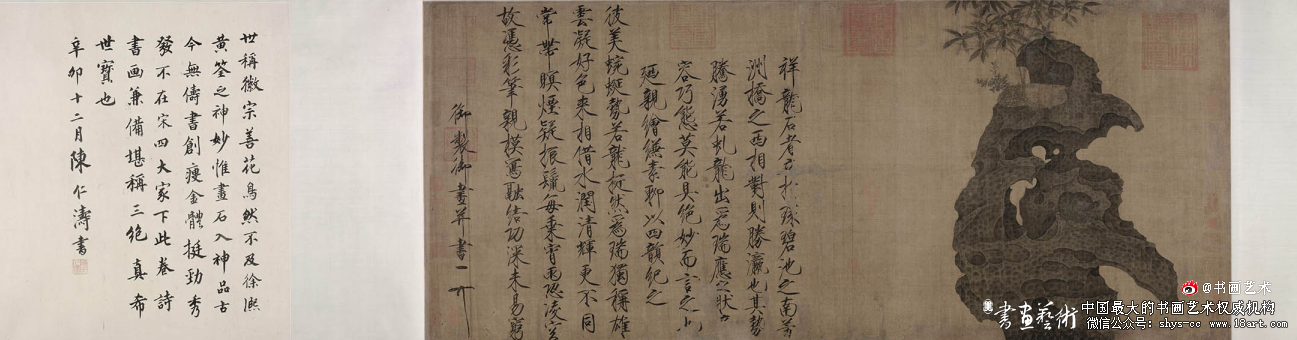 祥龍石者立於環碧池之南芳
洲橋之西相對則勝瀛也其勢
騰湧若虬龍出為瑞應之狀奇
容巧態莫能具絕妙而言之也
廼親繪縑素聊以四韻紀之
彼美蜿蜒勢若龍挺然為瑞獨稱雄
雲凝好色來相借水潤清輝更不同
常帶暝煙疑振鬣每乘宵雨恐凌空
故憑彩筆親模寫融結功深未易窮
御製御畫并書
世稱徽宗善花鳥然不及徐熙
黃筌之神妙惟畫石入神品古
今無儔書創瘦金體挺勁秀
發不在宋四大家下此卷詩
書画兼備堪稱三絕真希
世寶也
辛卯十二月陳仁濤書
書畫藝術
@书画艺术
中国最大的书画艺术权威机构
微信公众号：shys-cc www.18art.com